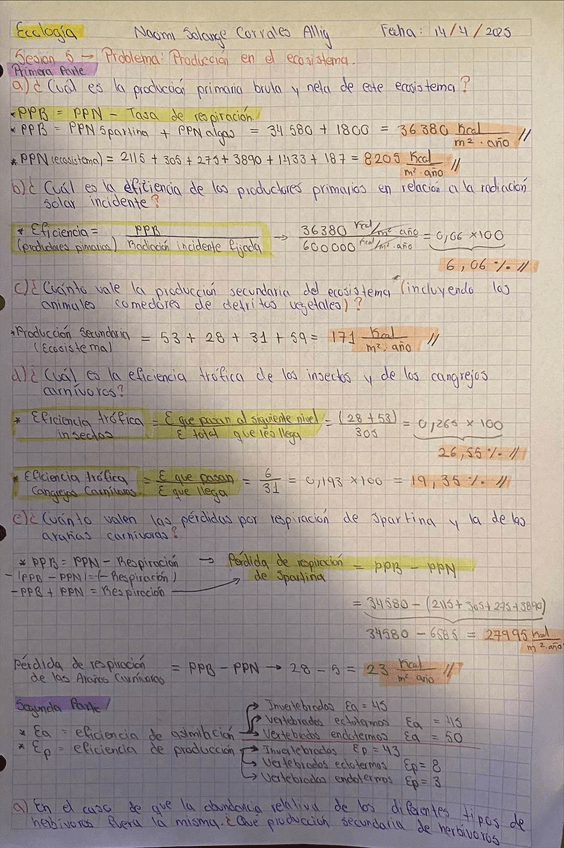 Ecología Naomi Solange Corrales Allig Fecha: 14/4/2025
Sesión 5 → Problema: Producción en el ecosistema.
Primera Parte
a) ¿Cuál es la producción primaria bruta y neta de este ecosistema?
* PPB = PPN - Tasa de respiración
* PPB = PPN Spartina + PPN algas = 34 580 + 1800 = 36 380 Kcal / m² · año //
* PPN (ecosistema) = 2115 + 305 + 275 + 3890 + 1433 + 187 = 8205 Kcal / m² · año //
b) ¿Cuál es la eficiencia de los productores primarios en relación a la radiación
solar incidente?
* Eficiencia (productores primarios) = PPB / Radiación incidente fijada → 36380 Kcal/m² año / 600000 Kcal/m² · año = 0,06 × 100
6,06 % //
c) ¿Cuánto vale la producción secundaria del ecosistema (incluyendo los
animales comedores de detritos vegetales)?
* Producción Secundaria (Ecosistema) = 53 + 28 + 31 + 59 = 171 Kcal / m² · año //
d) ¿Cuál es la eficiencia trófica de los insectos y de los cangrejos
carnívoros?
* Eficiencia trófica insectos = E que pasan al siguiente nivel / E total que les llega = (28 + 53) / 305 = 0,265 × 100
26,55 % //
* Eficiencia trófica Cangrejos Carnívoros = E que pasan / E que llega = 6 / 31 = 0,193 × 100 = 19,35 % //
e) ¿Cuánto valen las pérdidas por respiración de Spartina y la de las
arañas carnívoras?
* PPB = PPN - Respiración → Pérdida de respiración de Spartina = PPB - PPN
-(PPB - PPN) = (- Respiración)
- PPB + PPN = Respiración
= 34580 - (2115 + 305 + 275 + 3890)
34580 - 6585 = 27995 Kcal / m² año
Pérdida de respiración de las Arañas Carnívoras = PPB - PPN → 28 - 5 = 23 Kcal / m² año //
Segunda Parte
* Ea = eficiencia de asimilación → Invertebrados Ea = 45
→ Vertebrados ectotermos Ea = 45
→ Vertebrados endotermos Ea = 50
* Ep = eficiencia de producción → Invertebrados Ep = 43
→ Vertebrados ectotermos Ep = 8
→ Vertebrados endotermos Ep = 3
a) En el caso de que la abundancia relativa de los diferentes tipos de
herbívoros fuera la misma. ¿Qué producción secundaria de herbívoros